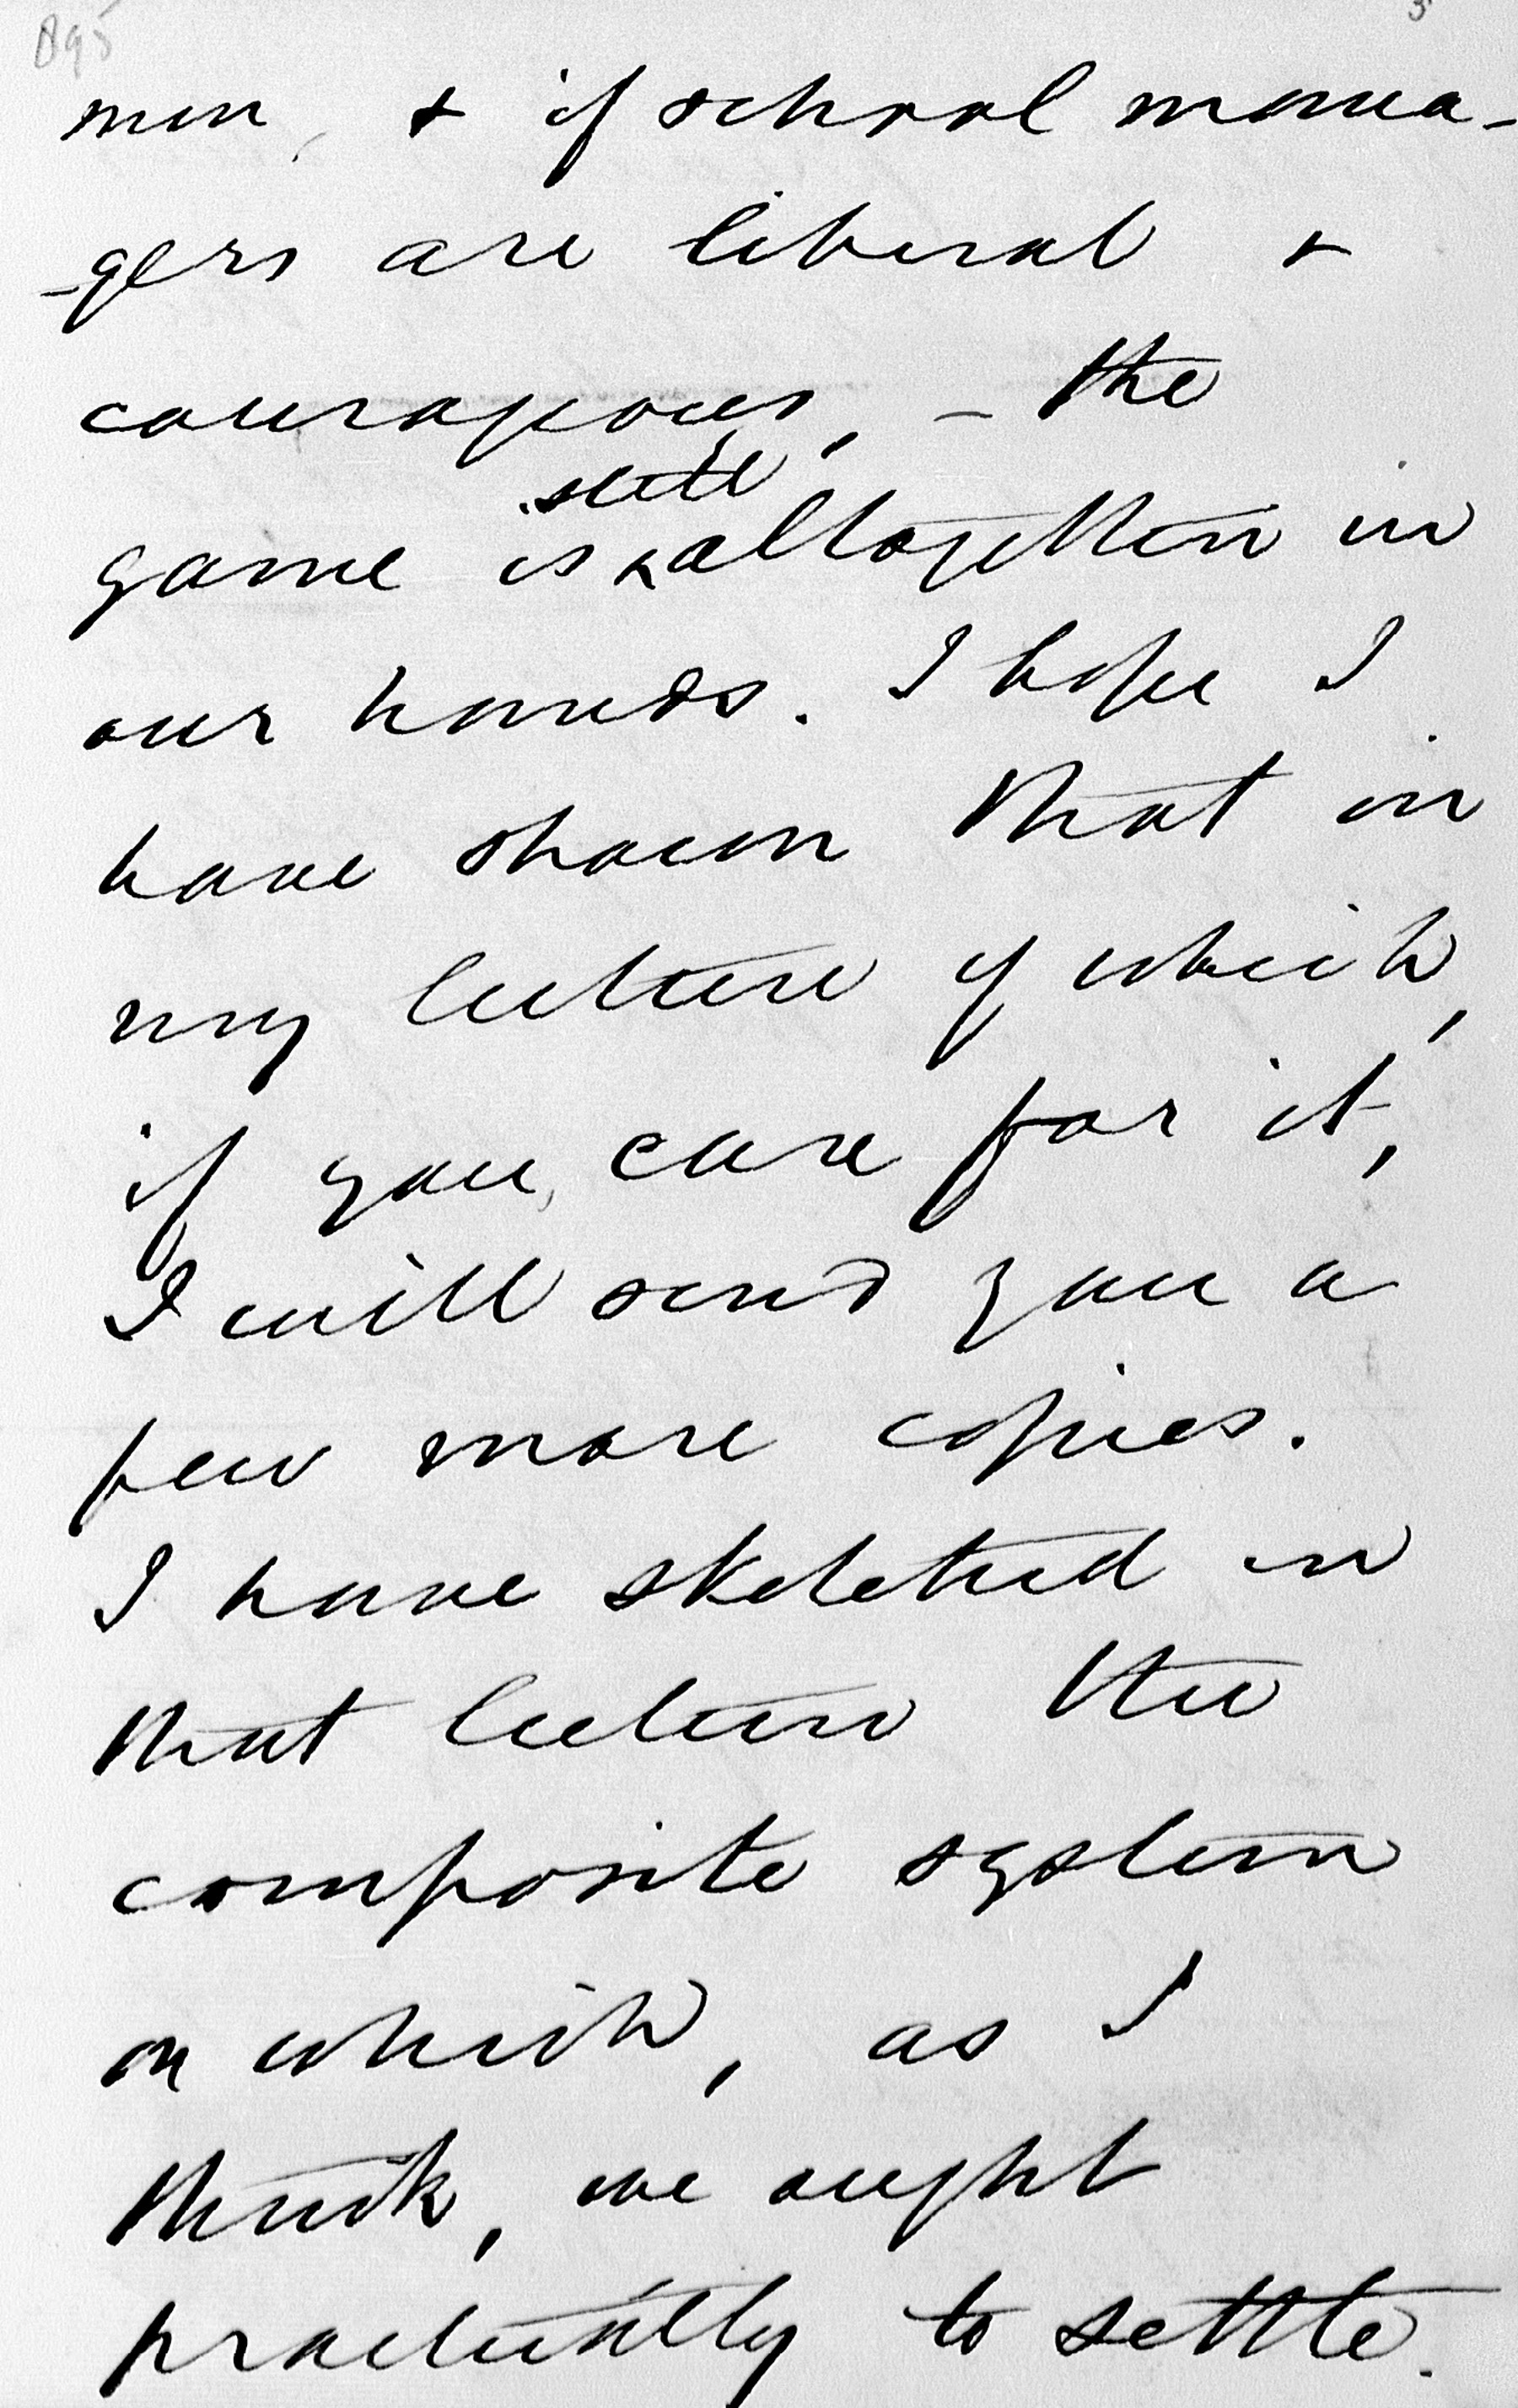 895
men, & if school mana-
-gers are liberal &
courageous, - the
still
game is altogether in
our hands. I hope I
have shown that in
my lecture of which,
if you care for it,
I will send you a
few more copies.
I have sketched in
that lecture the
composite system
on which, as I
think, we ought
practically to settle.